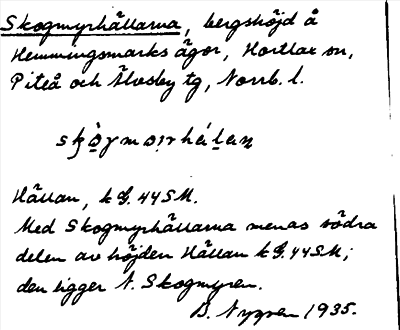 Skogmyrhällarna, bergshöjd å
Hemmingsmarks ägor, Hortlax sn,
Piteå och Älvsby tg, Norrb. l.
Hällan, k bl. 44SM.
Med Skogmyrhällarna menas södra
delen av höjden Hällan k bl. 44SM;
den ligger N. Skogmyren.
B. Nygren 1935.